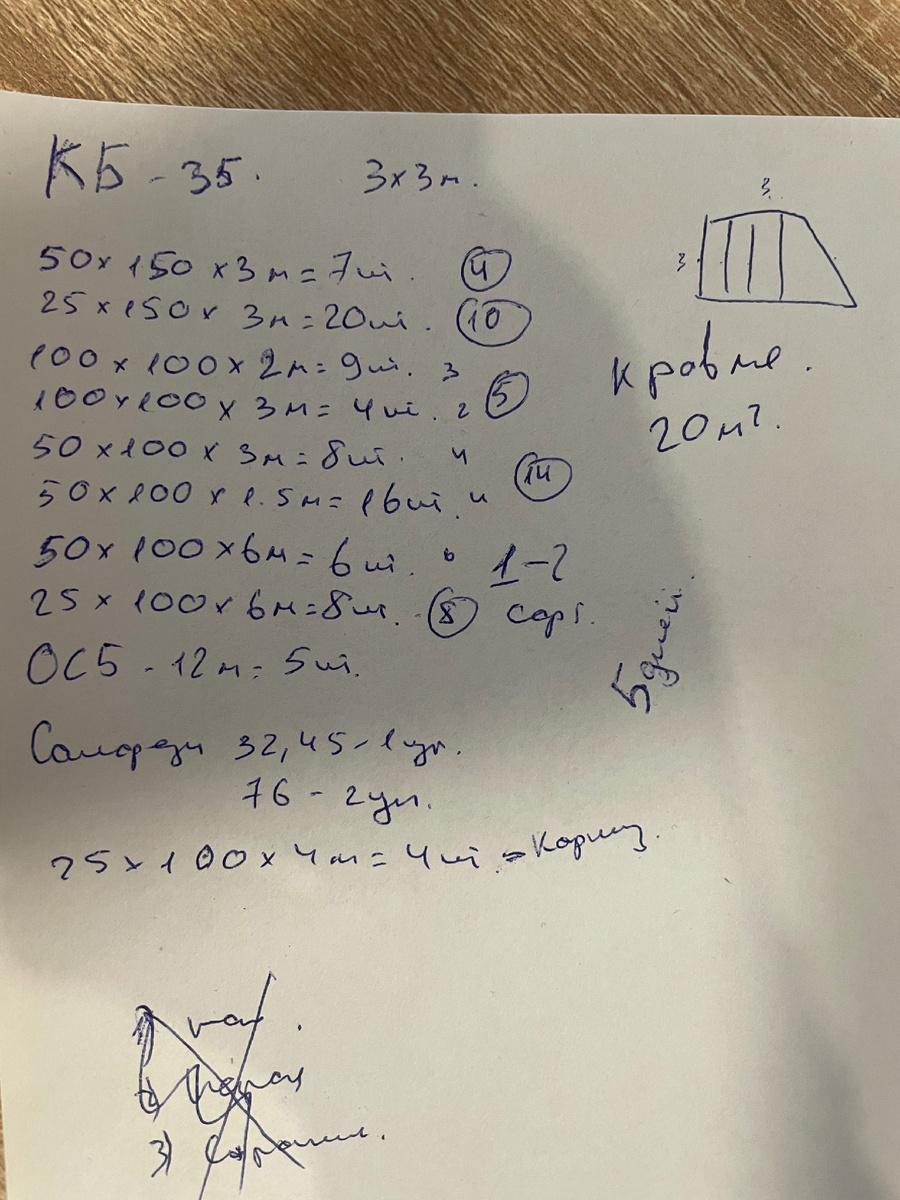 КБ - 35. 3х3м.
3
3
50х150х3м=7шт. 4
25х150х3м=20шт. 10
100х100х2м=9шт. 3
100х100х3м=4шт. 2 5
кровля.
20м²
50х100х3м=8шт. 4
50х100х1.5м=16шт. 4 14
50х100х6м=6шт. 6 1-2
25х100х6м=8шт. 8 сорт.
5 дней.
ОСБ - 12м = 5шт.
Саморезы 32,45 - 1уп.
76 - 2уп.
25х100х4м=4шт. - Карниз.
1)
2)
3)